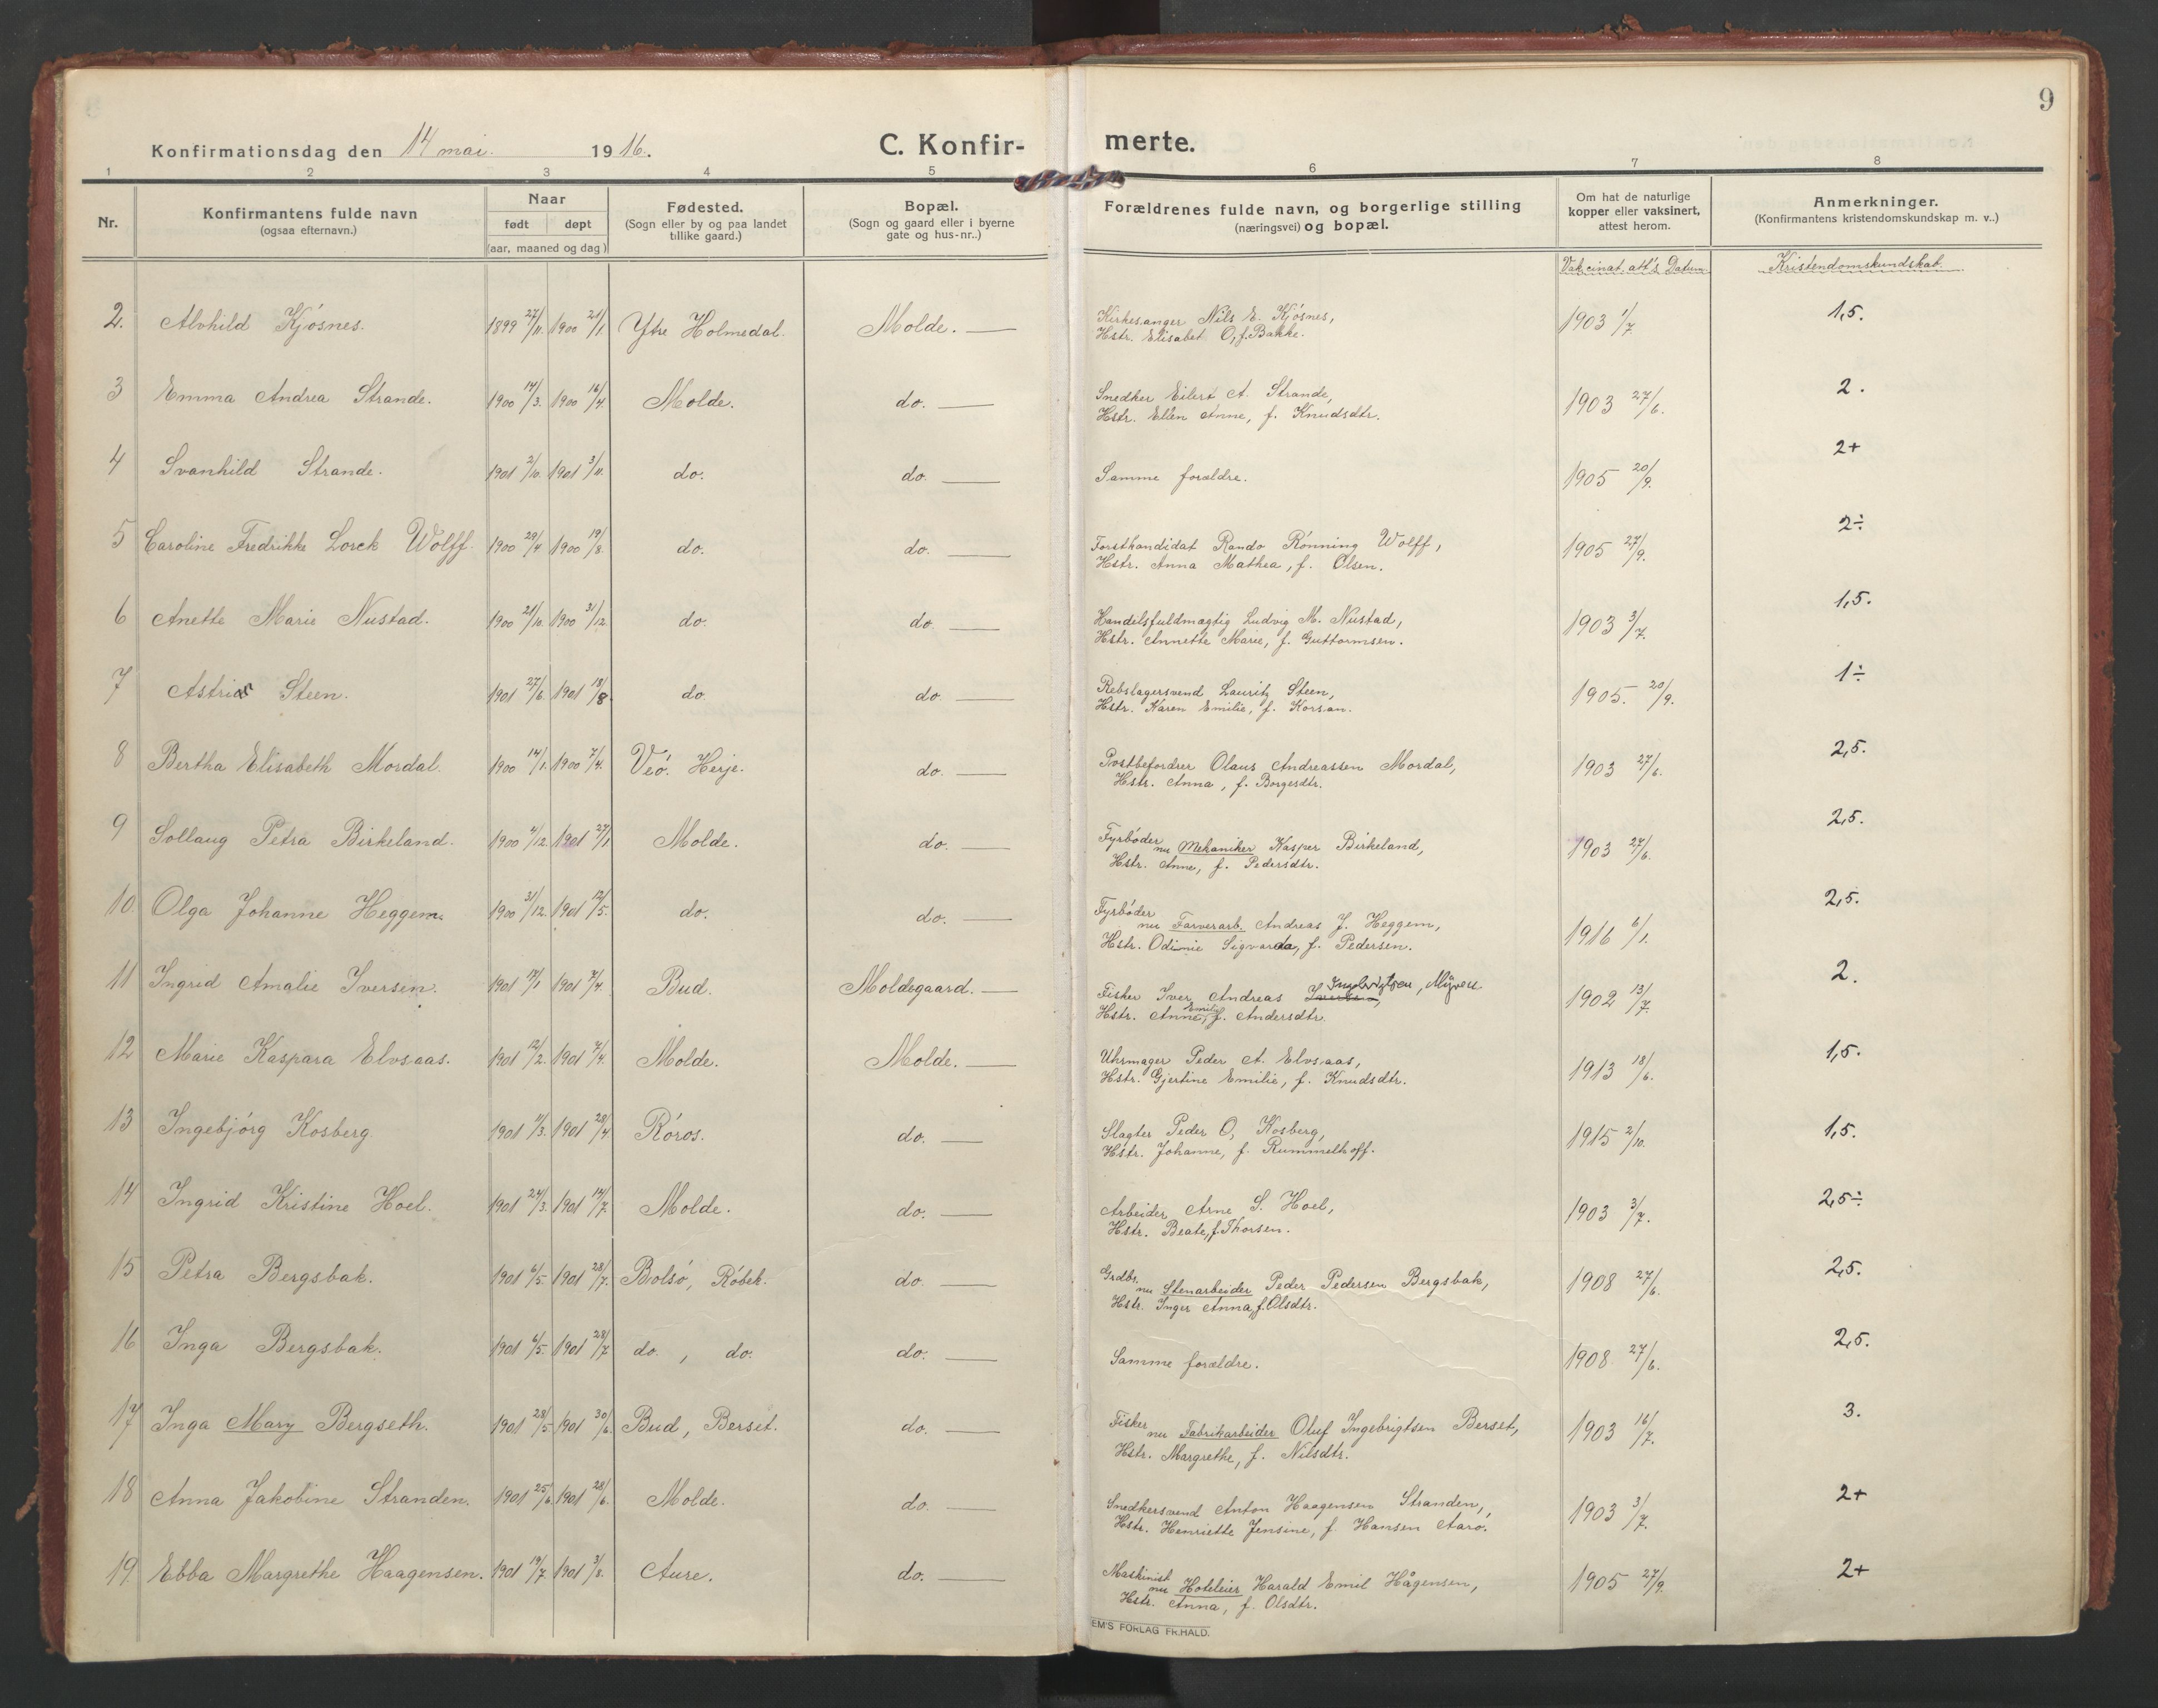 9
Konfirmationsdag den 14 mai. 1916.
C. Konfirmerte.
1 2 3 4 5 6 7 8
Nr.
Konfirmantens fulde navn
(ogsaa efternavn.)
Naar
født døpt
(aar, maaned og dag)
Fødested.
(Sogn eller by og paa landet
tillike gaard.)
Bopæl.
(Sogn og gaard eller i byerne
gate og hus-nr..)
Forældrenes fulde navn, og borgerlige stilling
(næringsvei) og bopæl.
Om hat de naturlige
kopper eller vaksinert,
attest herom.
Anmerkninger.
(Konfirmantens kristendomskundskap m. v..)
Vakcinat. att's Datum Kristendomskundskab.
2. Alvhild Kjósnes. 1899 27/11. 1900 21/1. Ytre Holmedal. Molde. — Kirkesanger Nils E. Kjósnes, 1903 1/7. 1,5.
Hstr. Elisabet O, f. Bakke.
3 Emma Andrea Strande. 1900 14/3. 1900 16/4. Molde. do. — Snedker Eilert A. Strande, 1903 27/6. 2.
Hstr. Ellen Anne, f. Knudsdtr.
4 Svanhild Strande. 1901 2/10. 1901 3/11. do. do. — Samme forældre. 1905 20/9. 2+
5 Caroline Fredrikke Lorck Wolff. 1900 29/4 1900 19/8. do. do. — Forstkandidat Rando Rónning Wolff, 1905 27/9. 2÷
Hstr. Anna Mathea, f. Olsen.
6 Anette Marie Nustad. 1900 21/10. 1900 31/12. do. do. — Handelsfuldmægtig Ludvig M. Nustad, 1903 3/7. 1,5.
Hstr. Annette Marie, f. Guttormsen.
7 Astrid Steen. 1901 27/6. 1901 18/8. do. do. — Rebslagersvend Lauritz Steen, 1905. 20/9. 1÷
Hstr. Karen Emilie, f. Korsan.
8 Bertha Elisabeth Mordal. 1900 14/1. 1900 7/4. Veó. Herje. do. — Postbefordrer Olaus Andreassen Mordal, 1903 27/6. 2,5.
Hstr. Anna, f. Borgesdtr.
9 Sollaug Petra Birkeland. 1900 4/12. 1901 27/1 Molde. do. — Fyrbóder nu Mekaniker Kasper Birkeland, 1903 27/6. 2,5.
Hstr. Anne, f. Pedersdtr.
10. Olga Johanne Heggem. 1900 31/12. 1901 12/5. do. do. — Fyrbóder nu Farverarb. Andreas J. Heggem, 1916 6/1. 2,5.
Hstr. Odinie Sigvarda, f. Pedersen.
11 Ingrid Amalie Iversen. 1901 17/1 1901 7/4. Bud. Moldegaard. — Fisker Iver Andreas Ingebrigtsen, Myren 1902 13/7. 2.
Hstr. Anne Emilie, f. Andersdtr.
12 Marie Kaspara Elvsaas. 1901 12/2. 1901 7/4. Molde. Molde. — Uhrmager Peder A. Elvsaas, 1913 18/6. 1,5.
Hstr. Gjertine Emilie, f. Knudsdtr.
13 Ingebjórg Kosberg. 1901 11/3. 1901 28/4 Róros. do. — Slagter Peder O, Kosberg, 1915 2/10. 1,5.
Hstr. Johanne, f. Rummelhoff.
14 Ingrid Kristine Hoel. 1901 24/3. 1901 14/7. Molde. do. — Arbeider Arne S. Hoel, 1903 3/7. 2,5÷
Hstr. Beate, f. Thorsen.
15 Petra Bergsbak. 1901 6/5. 1901 28/7. Bolsó, Róbek. do. — Grdbr. nu Stenarbeider Peder Pedersen Bergsbak, 1908 27/6. 2,5.
Hstr. Inger Anna, f. Olsdtr.
16 Inga Bergsbak. 1901 6/5. 1901 28/7. do., do. do. — Samme forældre. 1908 27/6. 2,5.
17 Inga Mary Bergseth. 1901 28/5. 1901 30/6. Bud, Berset. do. — Fisker nu Fabrikarbeider Oluf Ingebrigtsen Berset, 1903 16/7. 3.
Hstr. Margrethe, f. Nilsdtr.
18 Anna Jakobine Stranden. 1901 25/ 1901 28/6. Molde. do. — Snedkersvend Anton Haagensen Stranden, 1903 3/7. 2+
Hstr. Henriette Jensine, f. Hansen Aaró.
19. Ebba Margrethe Haagensen. 1901 19/7. 1901 3/8. Aure. do. — Maskinist nu Hoteleier Harald Emil Hågensen, 1905 27/9. 2+
Hstr. Anna, f. Olsdtr.
EM'S FORLAG FR.HALD.